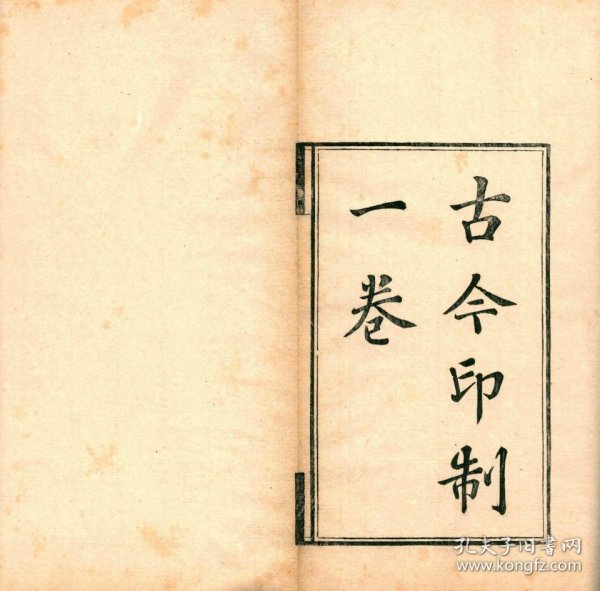 古今印制
一卷
孔夫子旧书网
www.kongfz.com